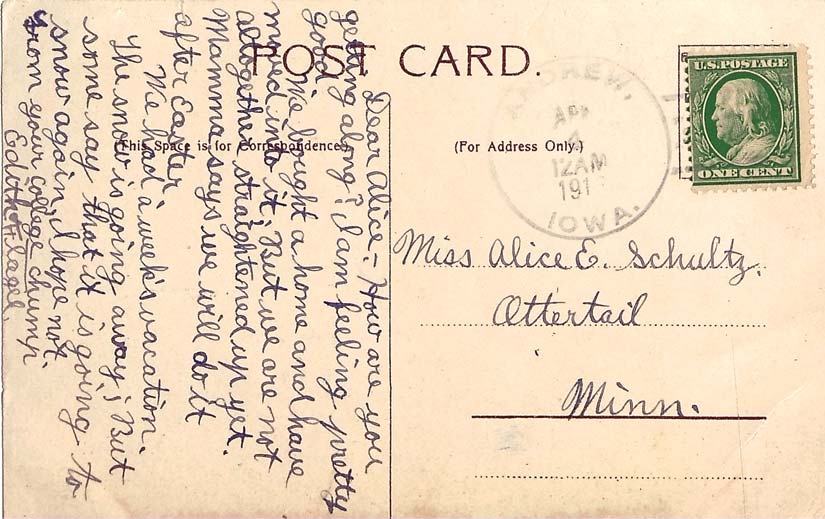 POST CARD.
(This Space is for Correspondence.)
(For Address Only.)
ANDREW,
APR
4
12AM
191
IOWA.
U.S. POSTAGE
ONE CENT
Dear Alice:- How are you
getting along? I am feeling pretty
good.
We bought a home and have
moved into it. But we are not
altogether straightened up yet.
Mamma says we will do it
after Easter
We had a week's vacation.
The snow is going away; But
some say that it is going to
snow again, I hope not.
From your college chump
Edith Flagel.
Miss Alice E. Schultz,
Ottertail
Minn.